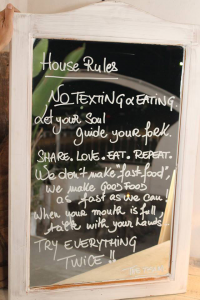 House Rules
NO TEXTING & EATING.
Let your Soul
guide your fork.
SHARE. LOVE. EAT. REPEAT.
We don't make "fast food",
we make GOOD FOOD
as fast as we can!
When your mouth is full,
talk with your hands!
TRY EVERYTHING
TWICE!!